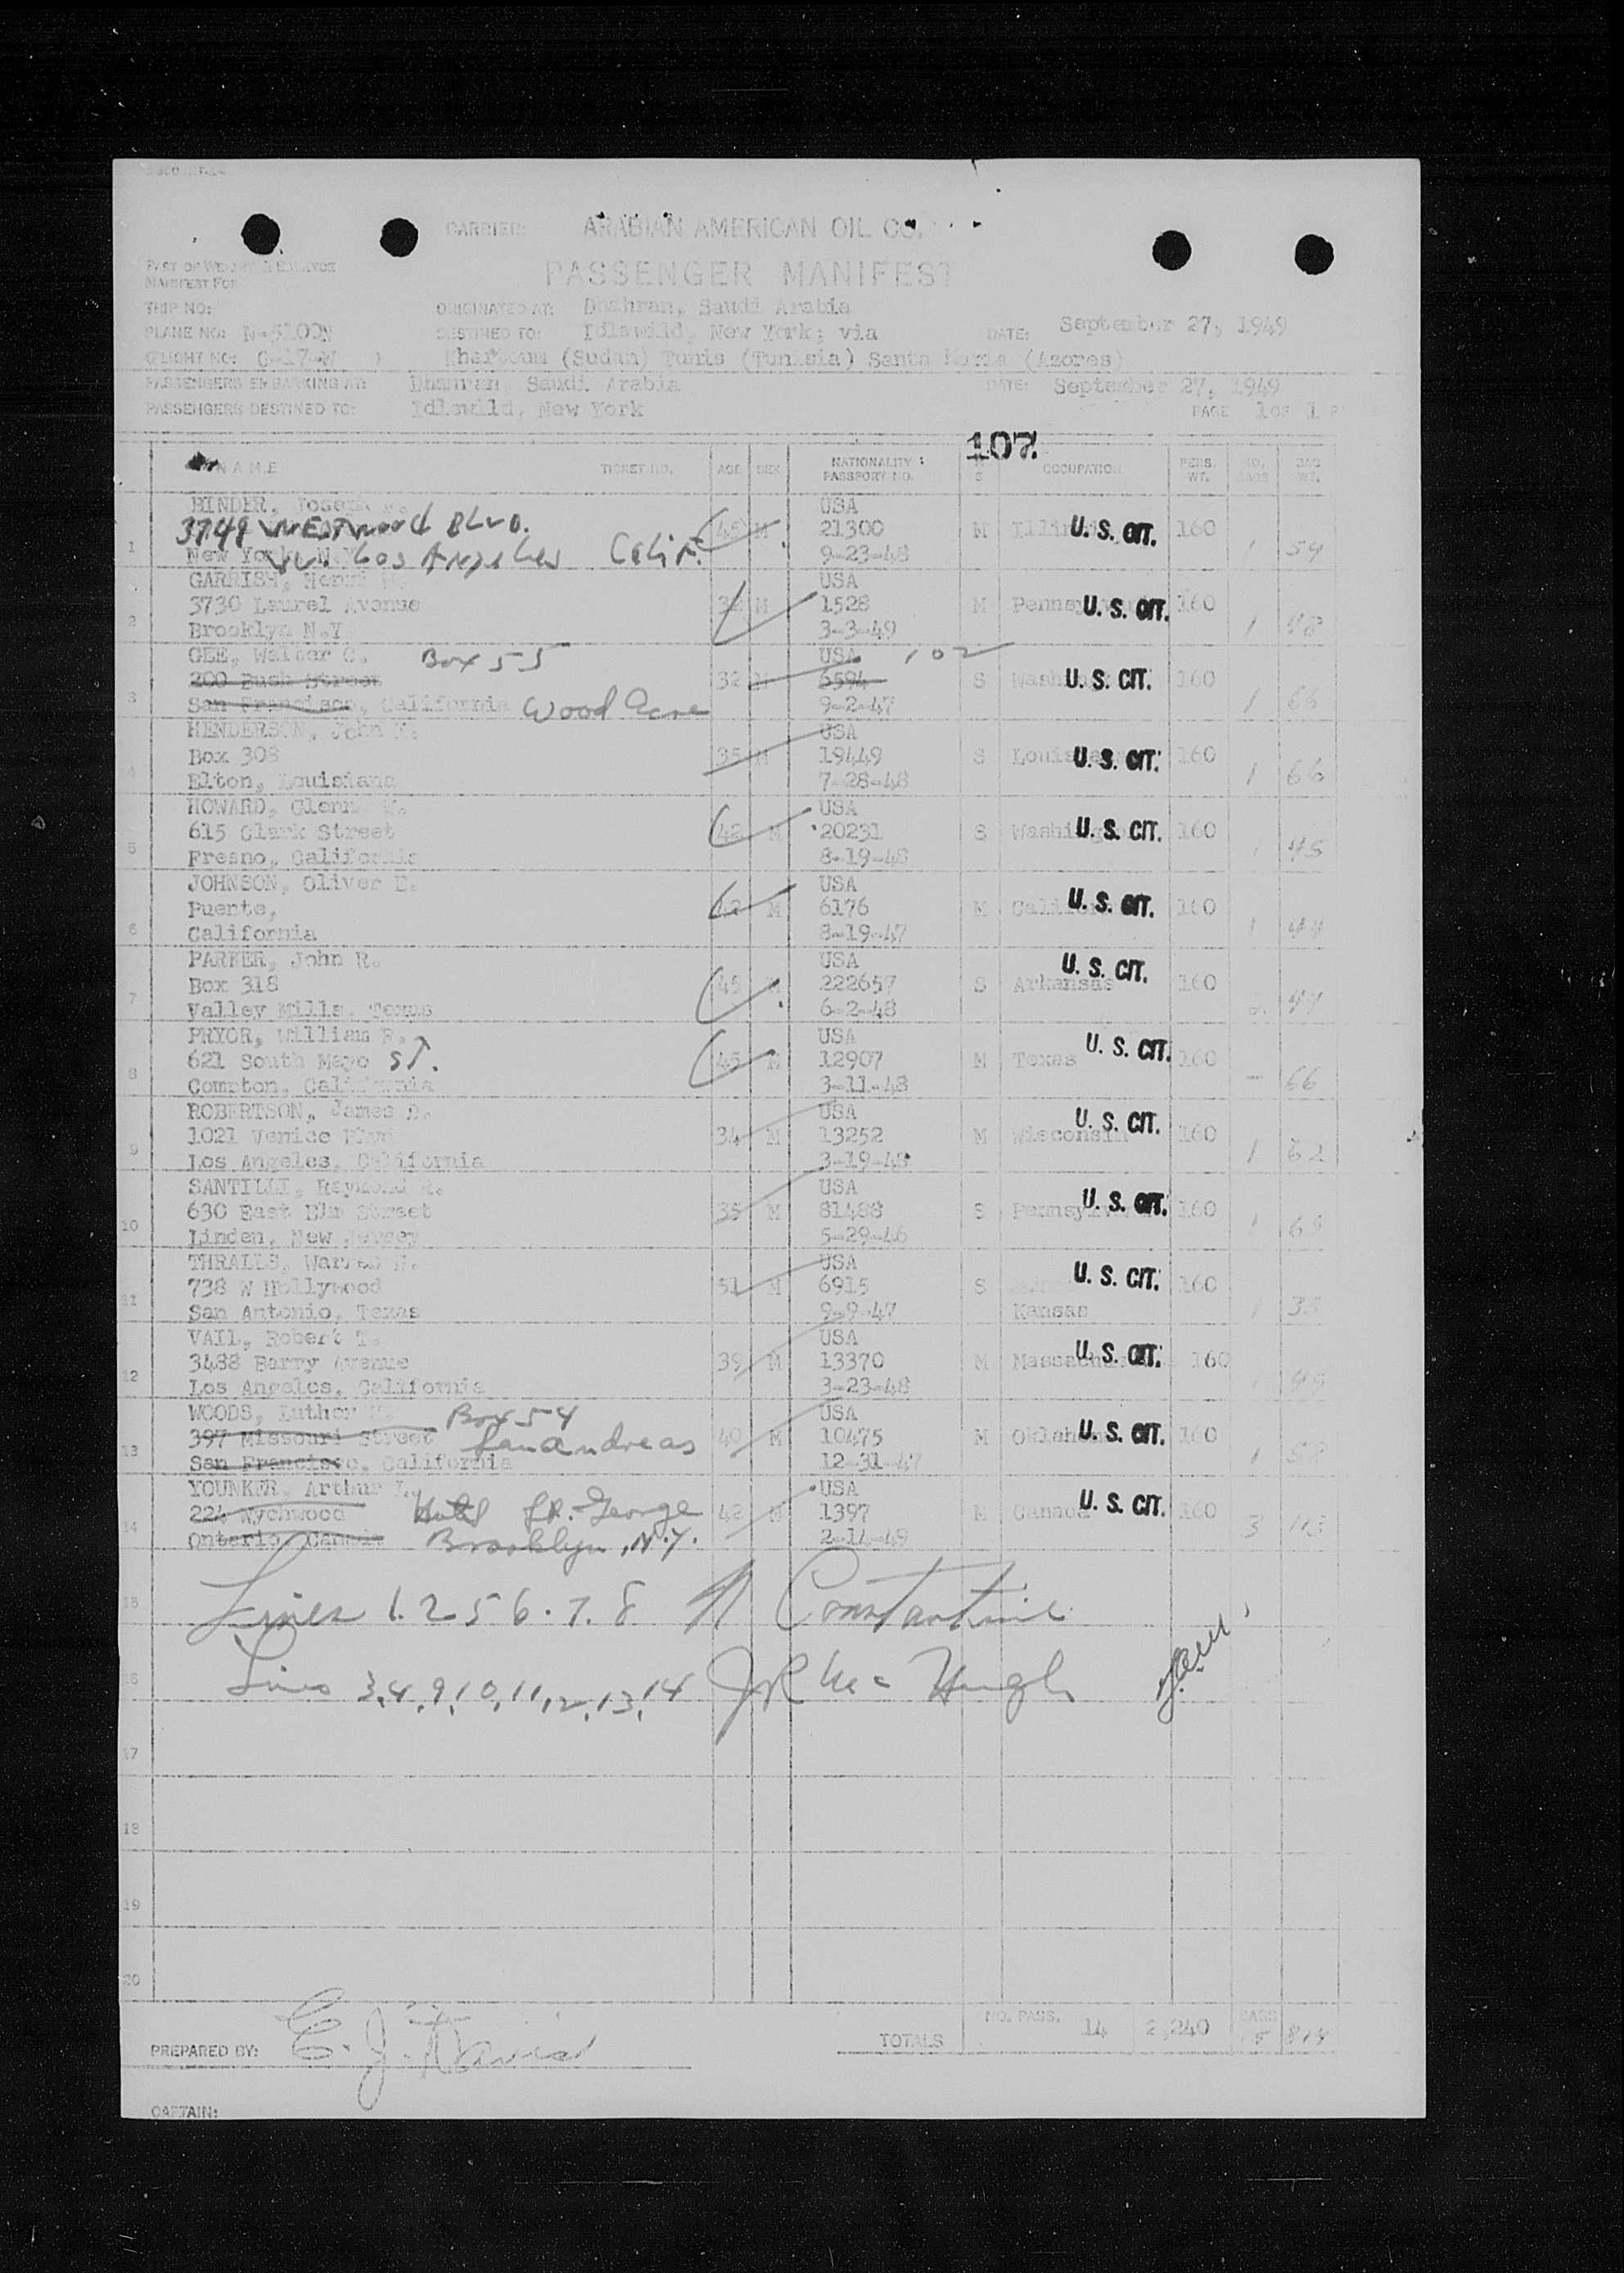 CARRIER: ARABIAN AMERICAN OIL CO.
PASSENGER MANIFEST
PART OF WEIGHT & BALANCE
MANIFEST FOR
TRIP NO: ORIGINATED AT: Dhahran, Saudi Arabia
PLANE NO: DESTINED TO: Idlewild, New York; via DATE: September 27, 1949
FLIGHT NO: Khartoum (Sudan) Tunis (Tunisia) Santa Maria (Azores)
PASSENGERS EMBARKING AT: Dhahran, Saudi Arabia DATE: September 27, 1949
PASSENGERS DESTINED TO: Idlewild, New York PAGE 1 OF 1
107.
NAME TICKET NO. AGE SEX NATIONALITY OCCUPATION PERS. NO. BAG
PASSPORT NO. WT. BAGS WT.
BINDER, Joseph USA
3749 Westwood Blvd. 45 M 21300 M U. S. CIT. 160
1 New York, N.Y. Los Angeles Calif. 9-23-48 1 59
GARRISH, USA
3730 Laurel Avenue M 1528 M U. S. CIT. 160
2 Brooklyn N.Y 3-3-49 1
GEE, Walter C. Box 55 USA 102
200 Bush Street 32 M 6594 S U. S. CIT. 160
3 San Francisco, California Wood Acre 9-2-47 1 66
HENDERSON, John USA
Box 308 35 M 19449 S U. S. CIT. 160
4 Elton, Louisiana 7-28-48 1 66
HOWARD, Glenn USA
615 Clark Street 42 M 20231 S U. S. CIT. 160
5 Fresno, California 8-19-48 45
JOHNSON, Oliver E. USA
Puente, M 6176 M U. S. CIT. 160
6 California 8-19-47 1 44
PARKER, John R. USA
Box 318 45 M 222657 S Arkansas U. S. CIT. 160
7 Valley Mills, Texas 6-2-48
PRYOR, William USA
621 South Mayo ST. 45 M 12907 M Texas U. S. CIT. 160
8 Compton, California 3-11-48 66
ROBERTSON, James USA
1021 Venice Blvd 34 M 13252 M Wisconsin U. S. CIT. 160
9 Los Angeles, California 3-19-48 1 62
SANTILLI, Raymond USA
630 East Elm Street 35 M 81488 S U. S. CIT. 160
10 Linden, New Jersey 5-29-46 1
THRALLS, Warren USA
738 W Hollywood 51 M 6915 S U. S. CIT. 160
11 San Antonio, Texas 9-9-47 Kansas
VAIL, Robert T. USA
3488 Barry Avenue 39 M 13370 M U. S. CIT. 160
12 Los Angeles, California 3-23-48
WOODS, Luther Box 54 USA
397 Missouri Street San Andreas 40 M 10475 M U. S. CIT. 160
13 San Francisco, California 12-31-47 1
YOUNKER, Arthur L. USA
224 Wychwood Hotel St. George 42 M 1397 M Canada U. S. CIT. 160
14 Ontario, Canada Brooklyn, N.Y. 2-14-49 3 113
15 Lines 1. 2 5 6. 7. 8 Constantine
16 Lines 3, 4, 9, 10, 11, 12, 13, 14 J R Mc Hugh
17
18
19
20
TOTALS NO. PASS. 14 2,240 BAGS
PREPARED BY: E. J. Davis
CAPTAIN: